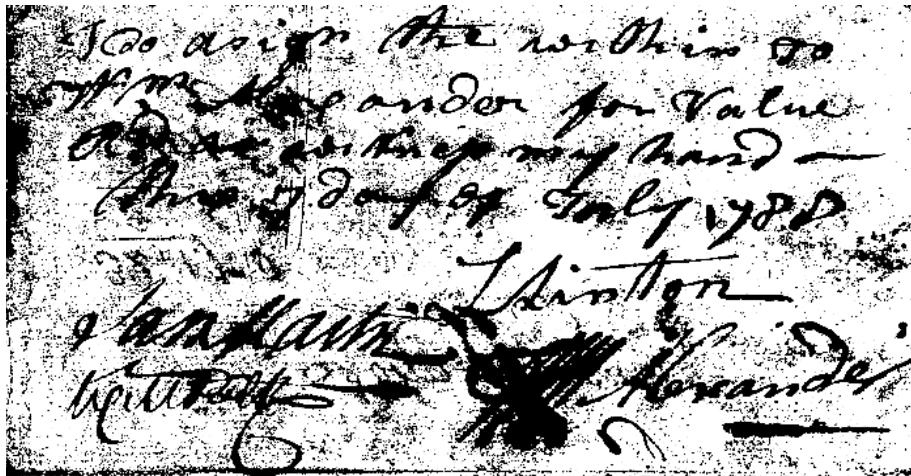 I do asign the within to
Wm Alexander for Value
Recd as witness my hand —
this 7 day of July 1788
Stinton
Sam Martin
Alexander